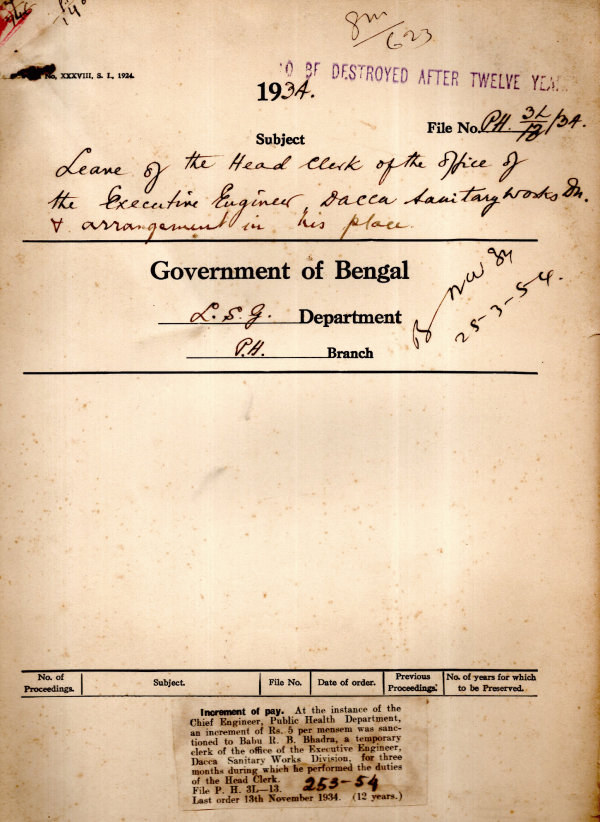 8m/623
No. XXXVIII, S. I., 1924.
O BE DESTROYED AFTER TWELVE YEA
1934.
File No. P.H. 3L/13/34.
Subject
Leave of the Head Clerk of the office of
the Executive Engineer, Dacca Sanitary Works Dn.
& arrangement in his place.
Government of Bengal
L. S. G. Department
P.H. Branch
B Nov 34
253-54.
No. of Proceedings. Subject. File No. Date of order. Previous Proceedings. No. of years for which to be Preserved.
Increment of pay. At the instance of the
Chief Engineer, Public Health Department,
an increment of Rs. 5 per mensem was sanc-
tioned to Babu R. B. Bhadra, a temporary
clerk of the office of the Executive Engineer,
Dacca Sanitary Works Division, for three
months during which he performed the duties
of the Head Clerk. 253-54
File P. H. 3L—13.
Last order 13th November 1934. (12 years.)